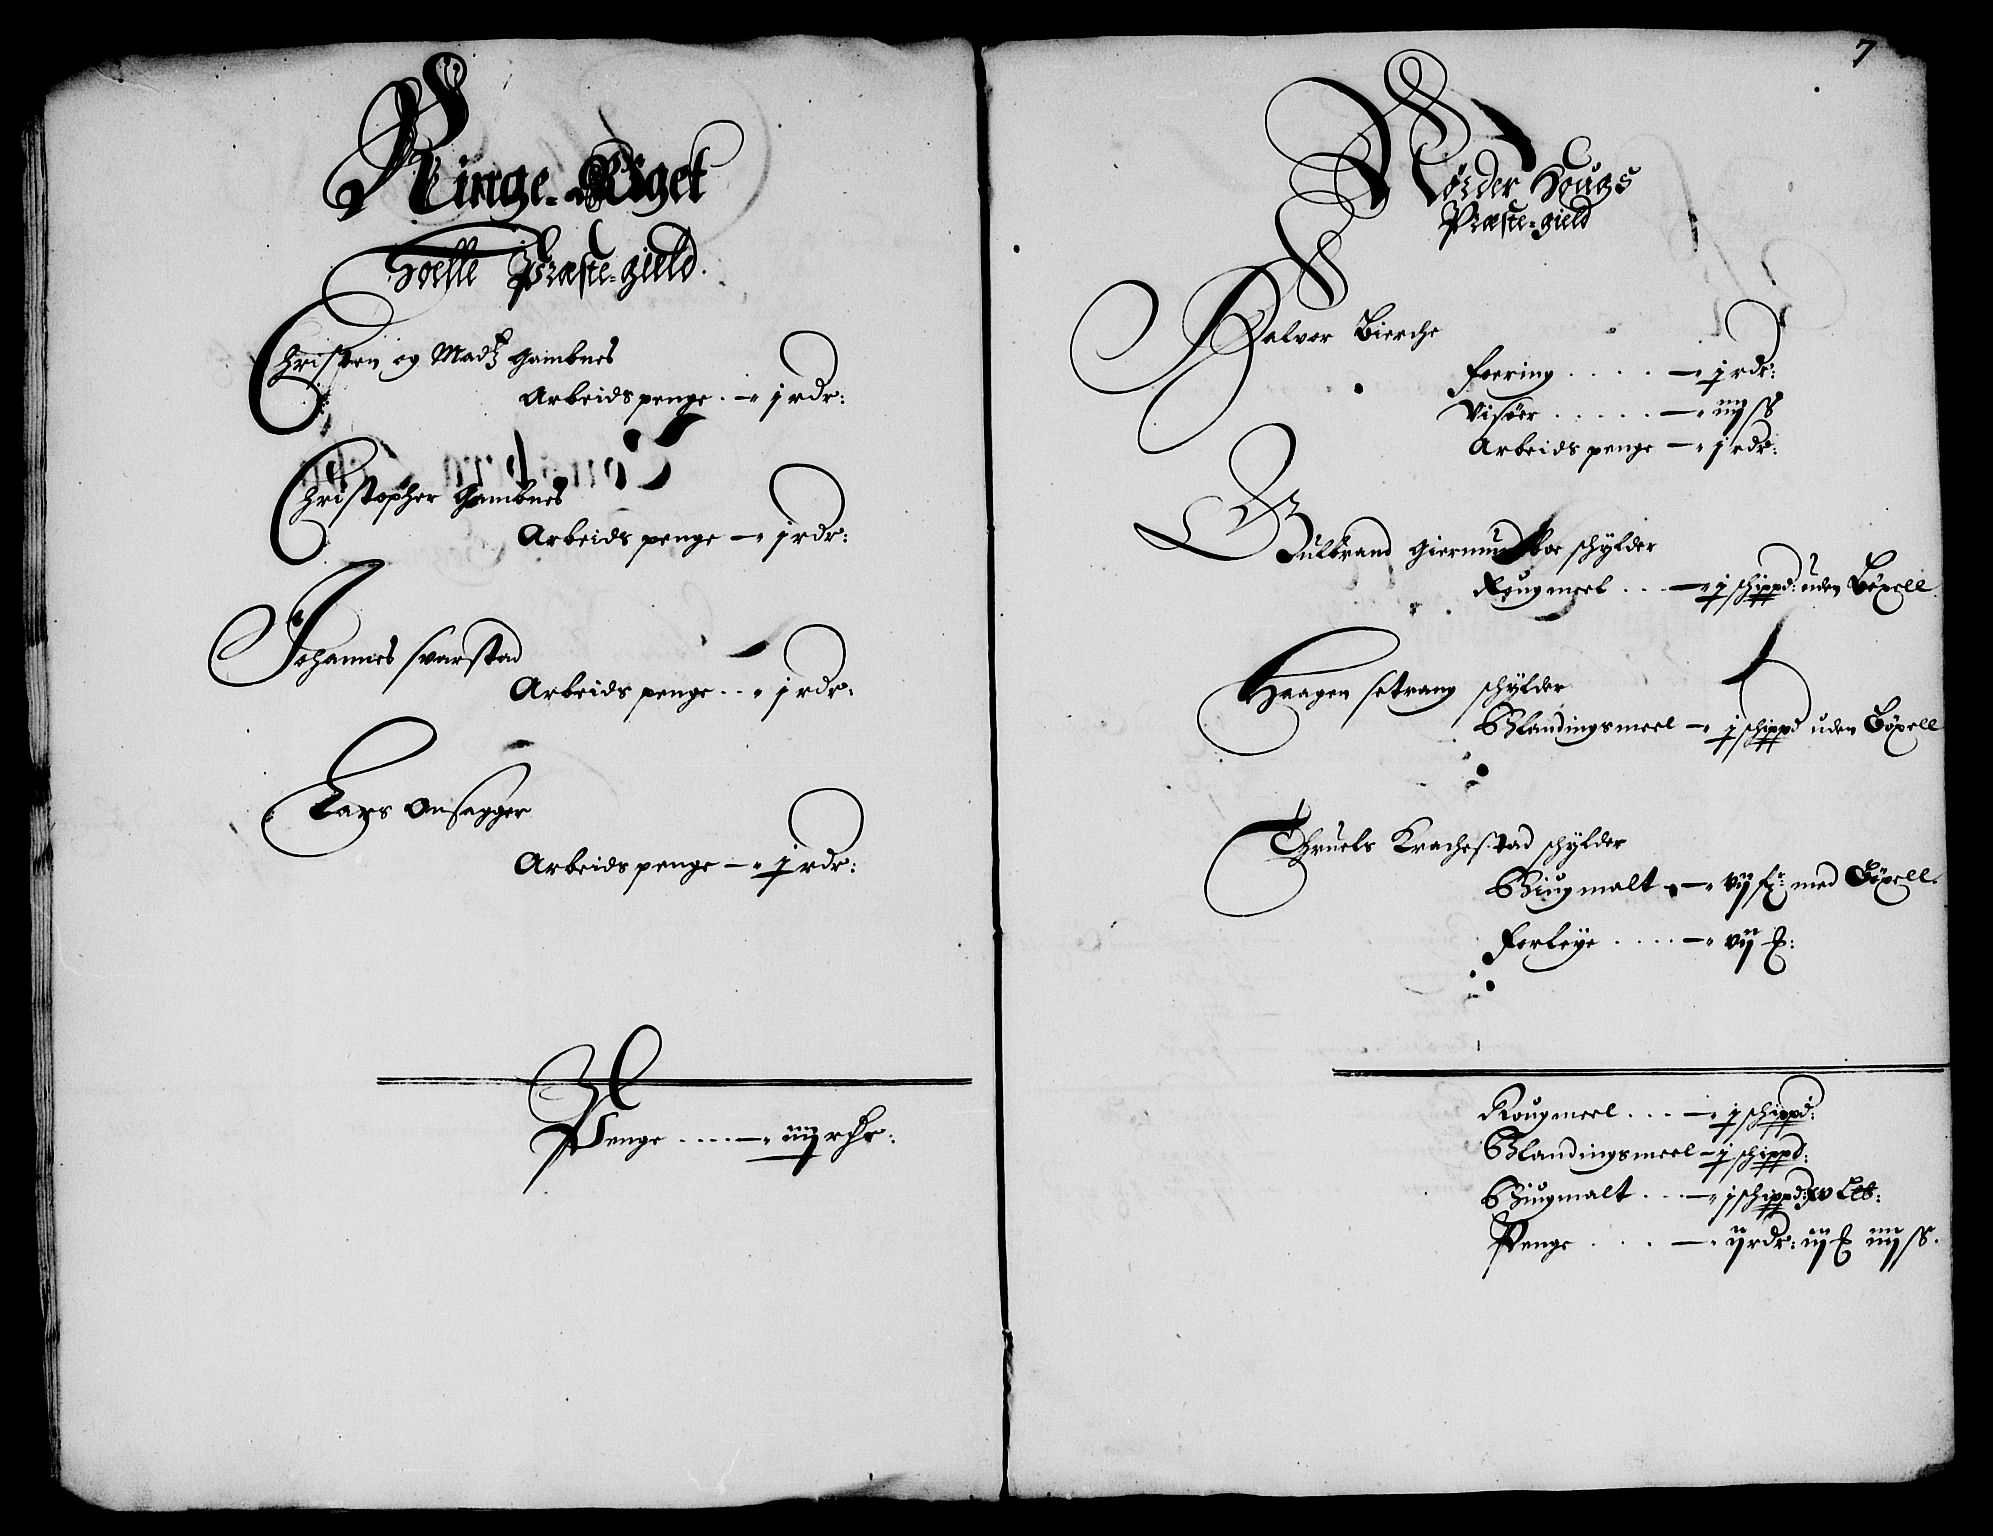 Ringe-Riget
Hoelle Præste-gield.
Christen og Madtz Gambnes
Arbeids penge . - j rdr:
Christopher Gambnes
Arbeids penge - j rdr:
Johannes svarstad
Arbeids penge . . j rdr:
Lars Onsagger
Arbeids penge - j rdr:
Penge . . . . - iiij rdr:
7
Nørder Hougs
Præste-gield
Halvor Bierche
Foering . . . . - j rdr:
Visøer . . . . . - iiij ss
Arbeids penge - j rdr:
Gulbrand Giermundboe schylder
Rougmeel . . . - j schippd: uden Bøxell.
Haagen setrang schylder
Blandingsmeel - j schippd uden Bøxell
Thruels Krachestad schylder
Biugmalt . - vij fr: med Bøxell.
Forleye . . . . - vij ß:
Rougmeel . . . - j schippd:
Blandingsmeel - j schippd:
Biugmalt . . . - j schippd: xv Lb:
Penge . . . - ij rdr: iij ß iiij ss.